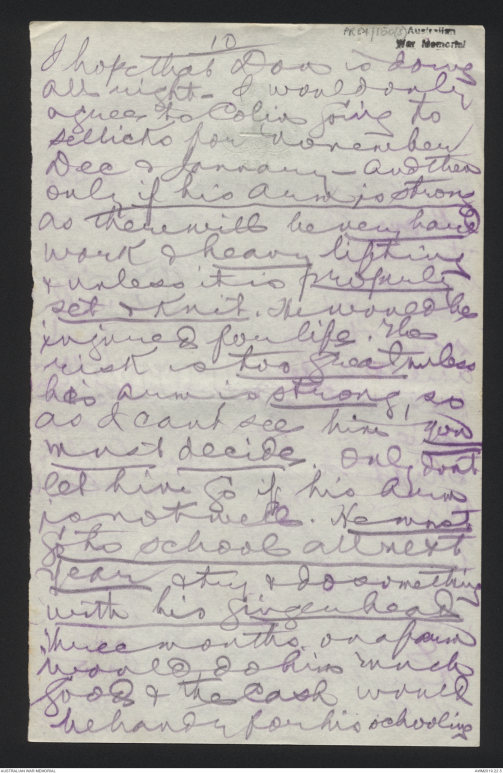 10
PR84/150(3) Australian
War Memorial
I hope that Don is doing
all right - I would only
agree to Colin going to
Sellicks for November
Dec & January - and then
only if his arm is strong
as there will be very hard
work & heavy lifting
& unless it is properly
set & knit. He would be
injured for life. The
risk is too great unless
his arm is strong so
as I cant see him, you
must decide. Only dont
let him go if his arm
is not well. He must
go to school all next
year & try & do something
with his ginger head
three months on a farm
would do him much
good & the cash would
be handy for his schooling
AUSTRALIAN WAR MEMORIAL